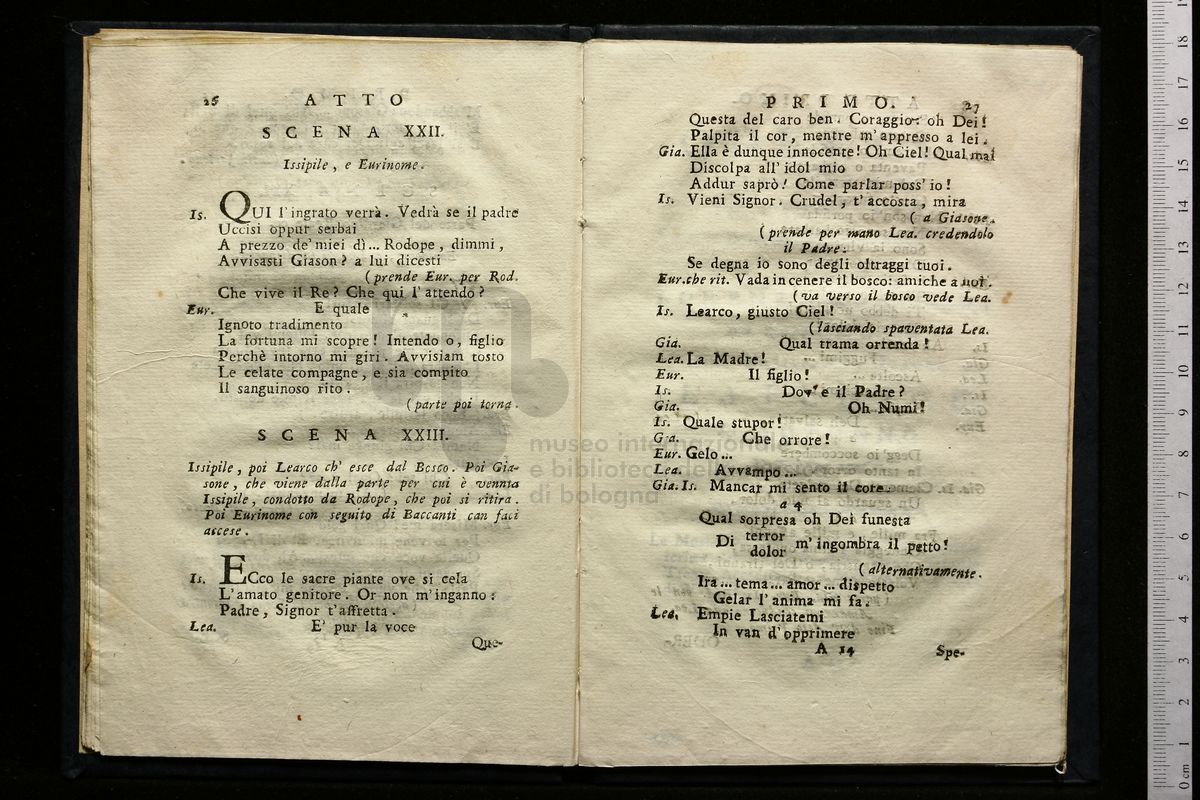 26 ATTO
SCENA XXII.
Issipile, e Eurinome.
Is. QUI l'ingrato verrà. Vedrà se il padre
Uccisi oppur serbai
A prezzo de' miei dì... Rodope, dimmi,
Avvisasti Giason? a lui dicesti
(prende Eur. per Rod.
Che vive il Re? Che qui l'attendo?
Eur. E quale
Ignoto tradimento
La fortuna mi scopre! Intendo o, figlio
Perchè intorno mi giri. Avvisiam tosto
Le celate compagne, e sia compito
Il sanguinoso rito.
(parte poi torna.
SCENA XXIII.
Issipile, poi Learco ch' esce dal Bosco. Poi Gia-
sone, che viene dalla parte per cui è vennta
Issipile, condotto da Rodope, che poi si ritira.
Poi Eurinome con seguito di Baccanti can faci
accese.
Is. ECco le sacre piante ove si cela
L'amato genitore. Or non m'inganno:
Padre, Signor t'affretta.
Lea. E' pur la voce
Que-
PRIMO. 27
Questa del caro ben. Coraggio: oh Dei!
Palpita il cor, mentre m'appresso a lei.
Gia. Ella è dunque innocente! Oh Ciel! Qual mai
Discolpa all' idol mio
Addur saprò! Come parlar poss' io!
Is. Vieni Signor. Crudel, t' accosta, mira
( a Giasone.
(prende per mano Lea. credendolo
il Padre.
Se degna io sono degli oltraggi tuoi.
Eur.che rit. Vada in cenere il bosco: amiche a noi.
(va verso il bosco vede Lea.
Is. Learco, giusto Ciel!
(lasciando spaventata Lea.
Gia. Qual trama orrenda!
Lea. La Madre!
Eur. Il figlio!
Is. Dov' è il Padre?
Gia. Oh Numi!
Is. Quale stupor!
Gia. Che orrore!
Eur. Gelo...
Lea. Avvampo...
Gia. Is. Mancar mi sento il core.
a 4
Qual sorpresa oh Dei funesta
Di terror
dolor m' ingombra il petto!
(alternativamente.
Ira... tema... amor... dispetto
Gelar l' anima mi fa.
Lea. Empie Lasciatemi
In van d' opprimere
A 14 Spe-
museo internazionale
e biblioteca della
di bologna
0 cm 1 2 3 4 5 6 7 8 9 10 11 12 13 14 15 16 17 18